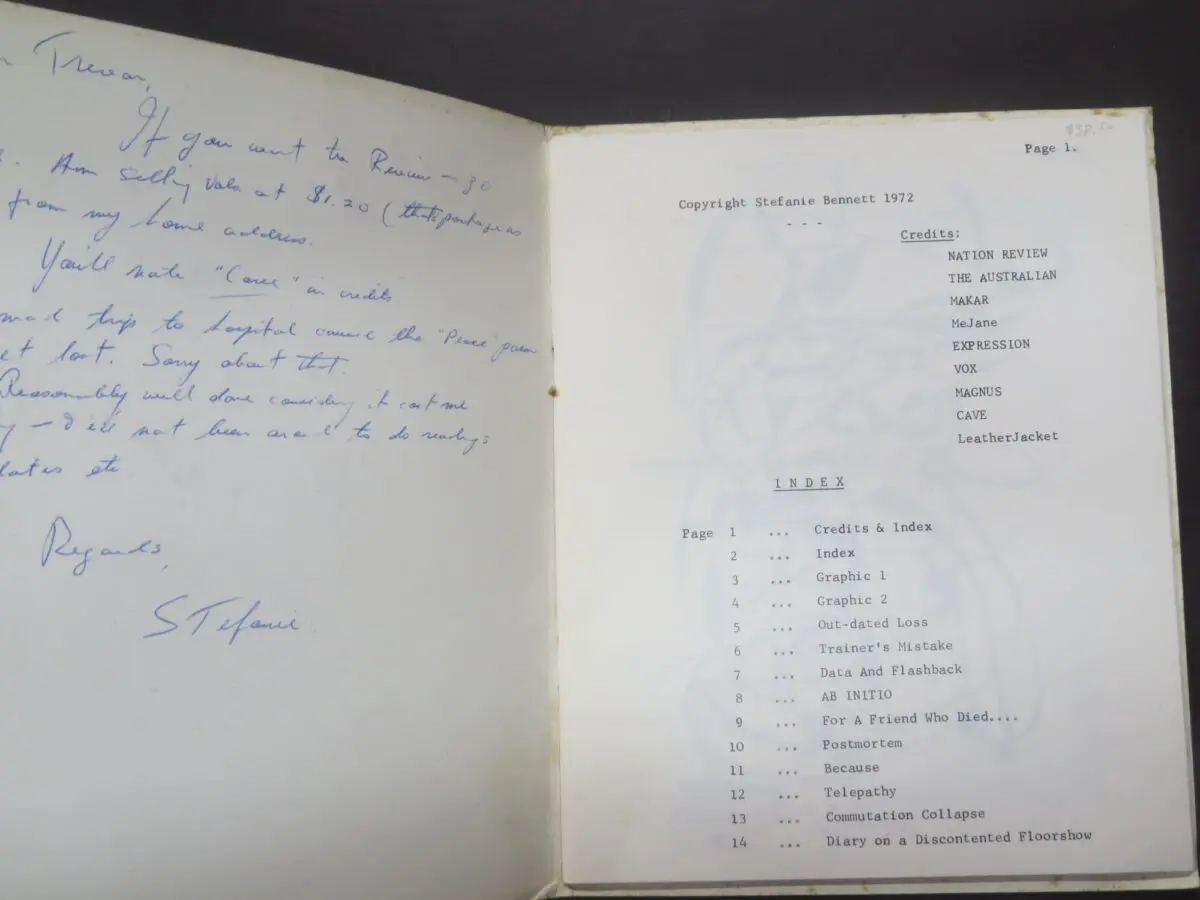 Trevor,
If you want to Review - 30
Am selling Vols at $1.20 (that's postage as
from my home address.
You'll note "Cave" in credits
trip to hospital cause the "Peace" poem
et lost. Sorry about that.
Reasonably well done considering it cost me
not been around to do readings
etc
Regards,
STefanie
$38.
Page 1.
Copyright Stefanie Bennett 1972
- - -
Credits:
NATION REVIEW
THE AUSTRALIAN
MAKAR
MeJane
EXPRESSION
VOX
MAGNUS
CAVE
LeatherJacket
I N D E X
Page 1 ... Credits & Index
2 ... Index
3 ... Graphic 1
4 ... Graphic 2
5 ... Out-dated Loss
6 ... Trainer's Mistake
7 ... Data And Flashback
8 ... AB INITIO
9 ... For A Friend Who Died....
10 ... Postmortem
11 ... Because
12 ... Telepathy
13 ... Commutation Collapse
14 ... Diary on a Discontented Floorshow